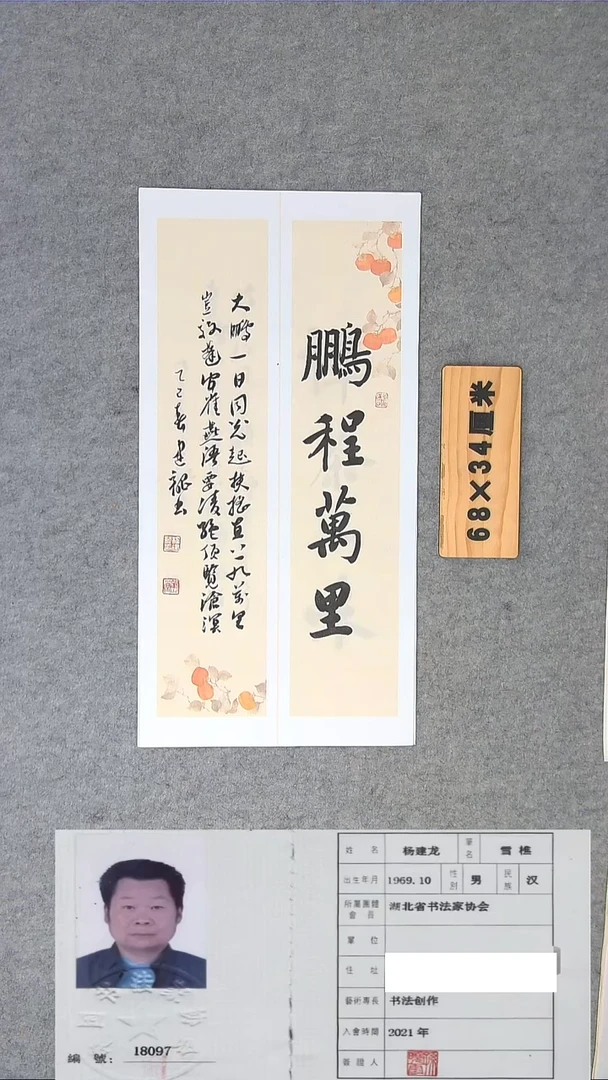 鵬程萬里
大鹏一日同风起扶摇直上九万里
豈效蓬间雀燕语要凌绝顶覽滄溟
乙巳春建龙书
68×34厘米
姓 名 杨建龙 筆名 雪樵
出生年月 1969.10 性别 男 民族 汉
所屬團體會員 湖北省书法家协会
單 位
住 址
藝術專長 书法创作
入會時間 2021年
簽證人
編號：18097